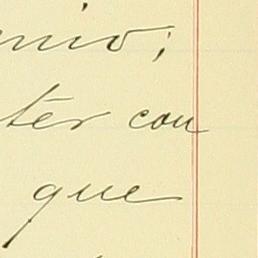 nio;
ter con
que